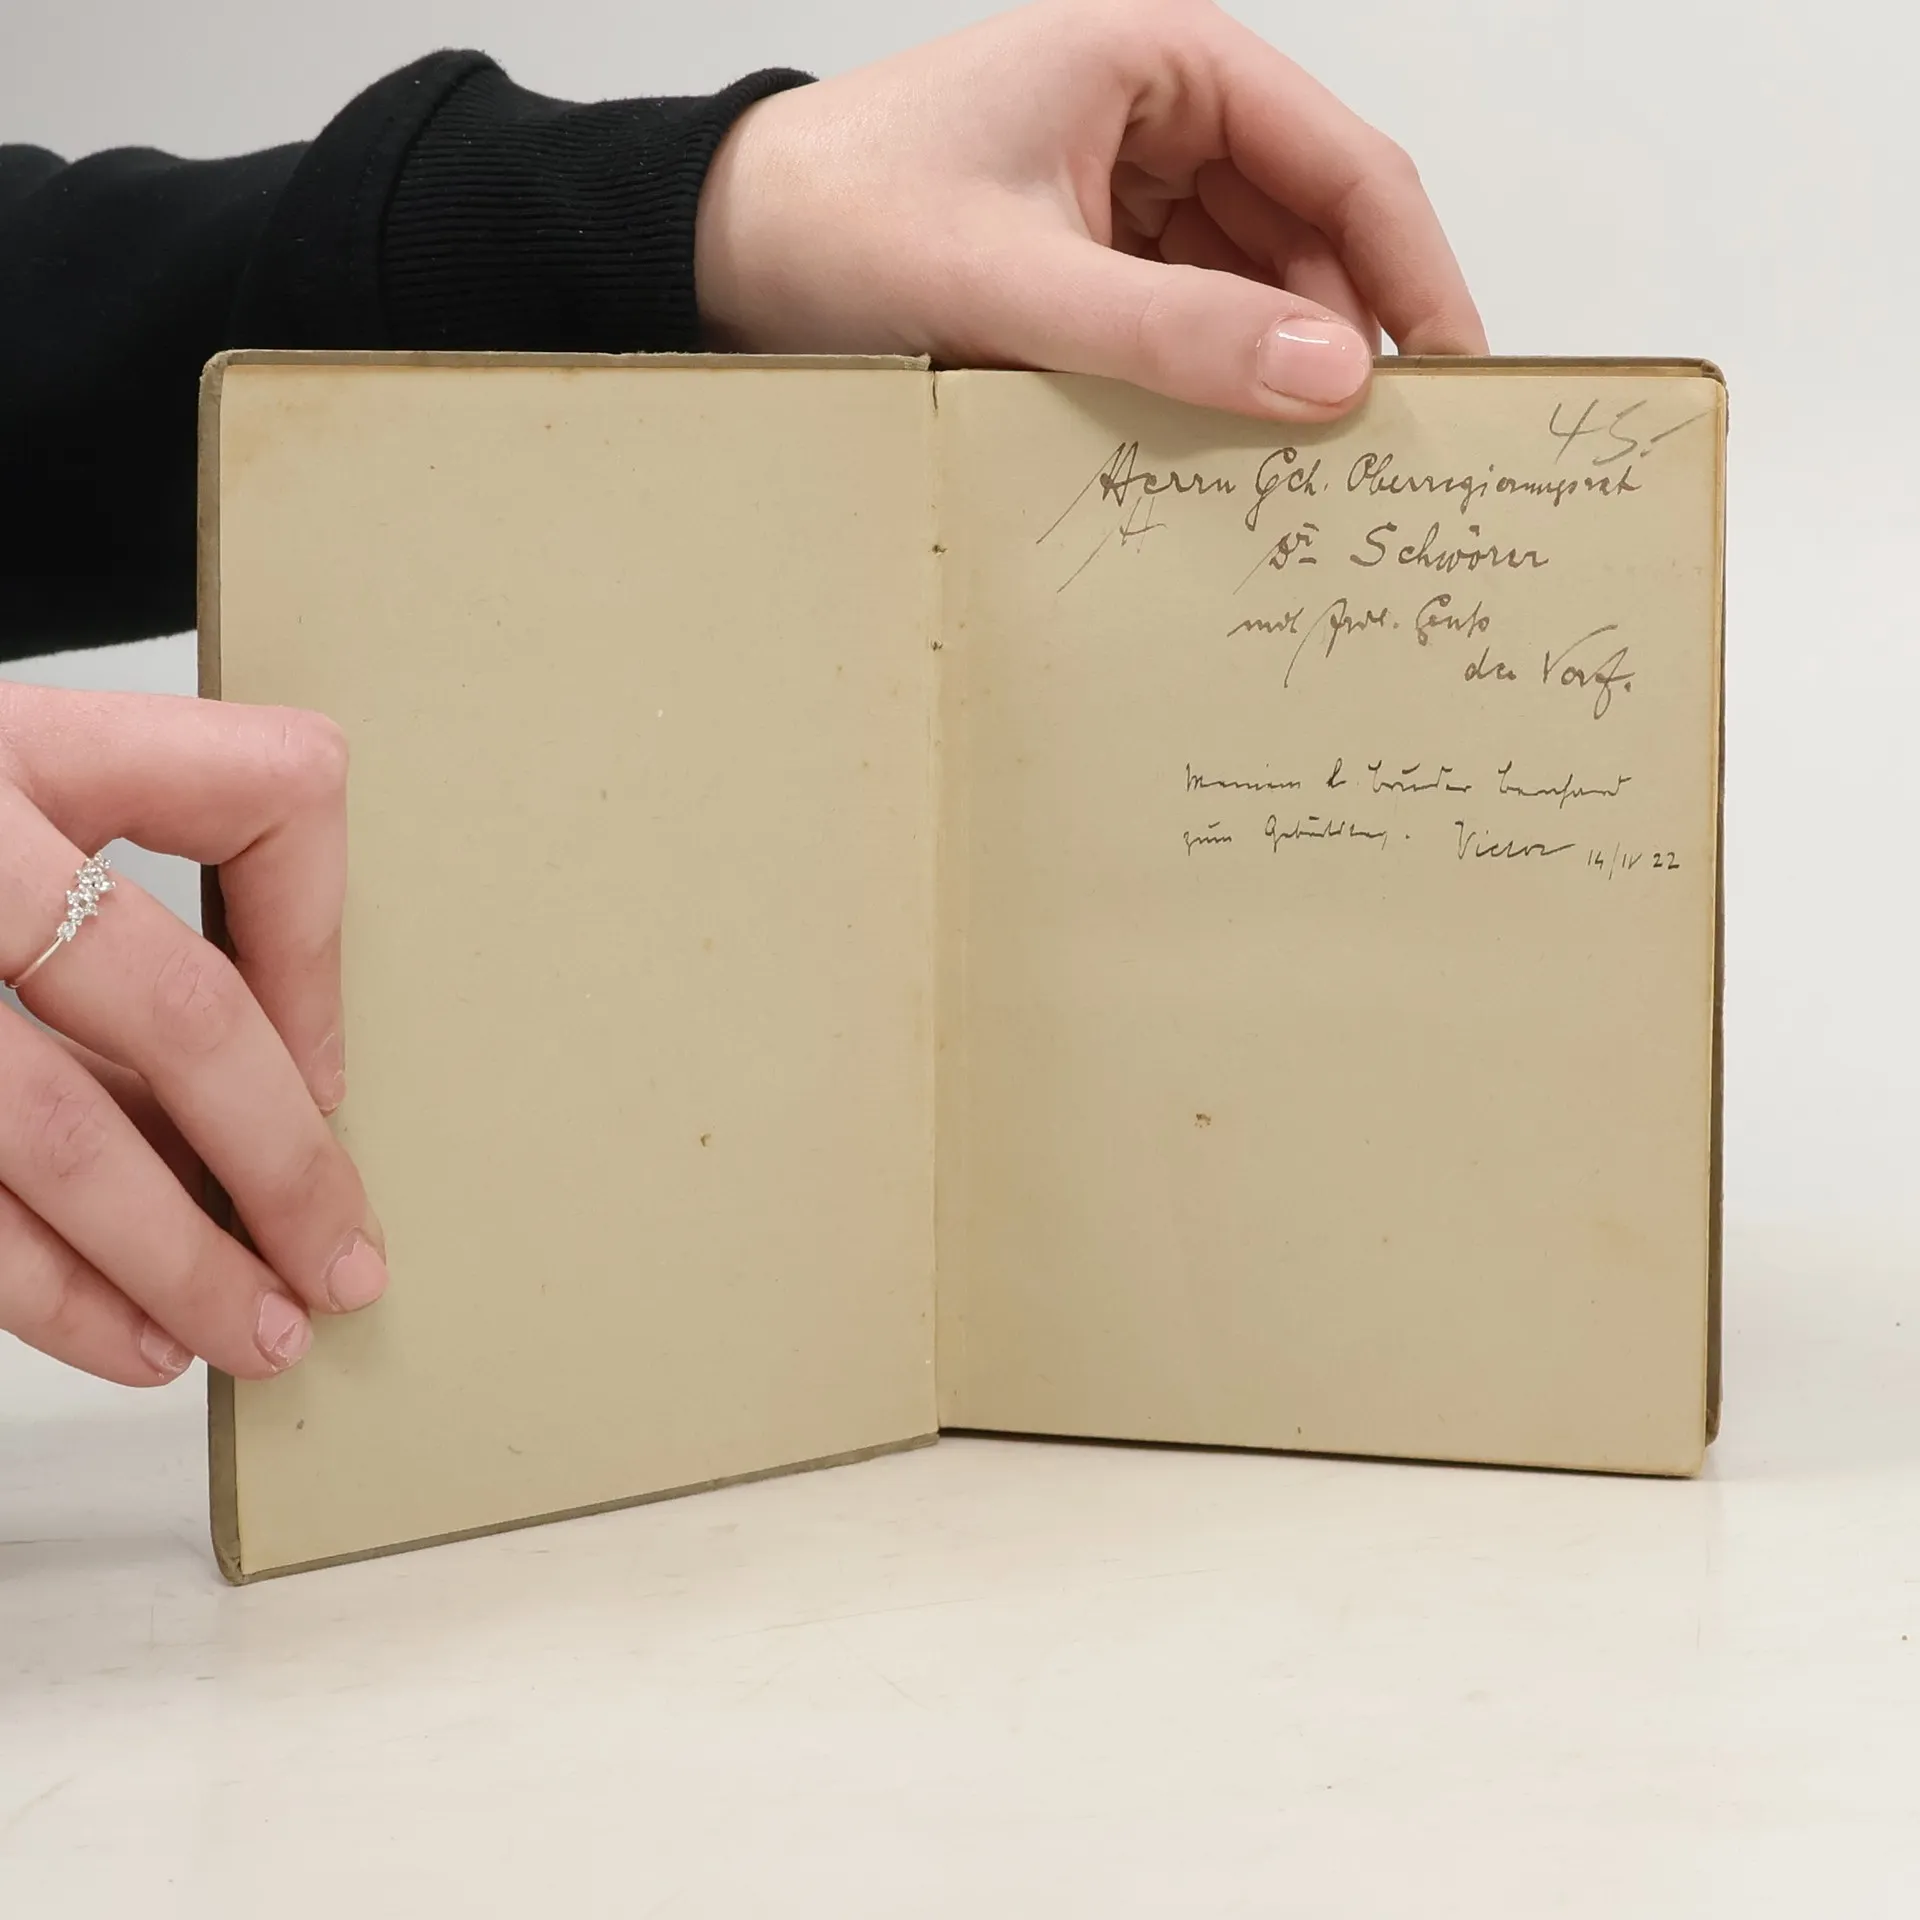 45.-
Herrn Geh. Oberregierungsrat
Dr Schwörer
mit frdl. Gruß
der Verf.
Meinem l. Bruder Bernhard
zum Geburtstag. Victor 14/IV 22